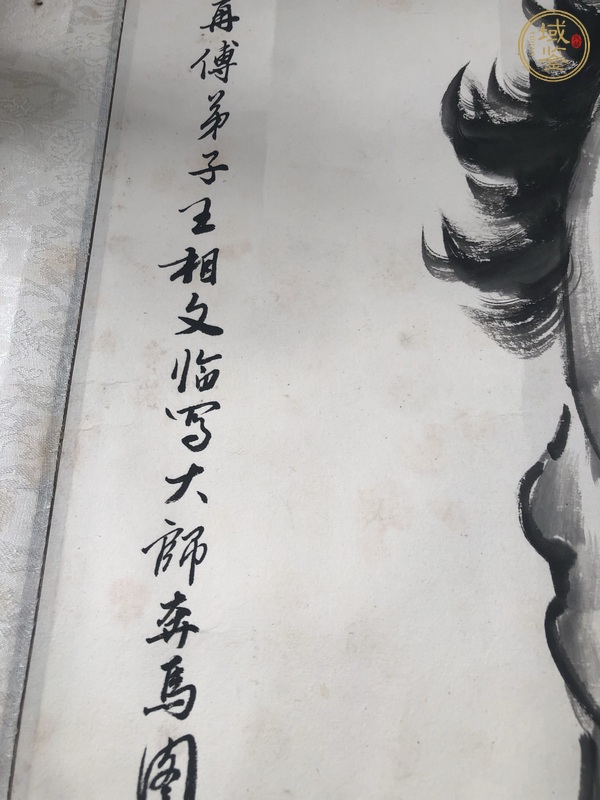 再傅弟子王相文临写大師奔馬图
域鉴